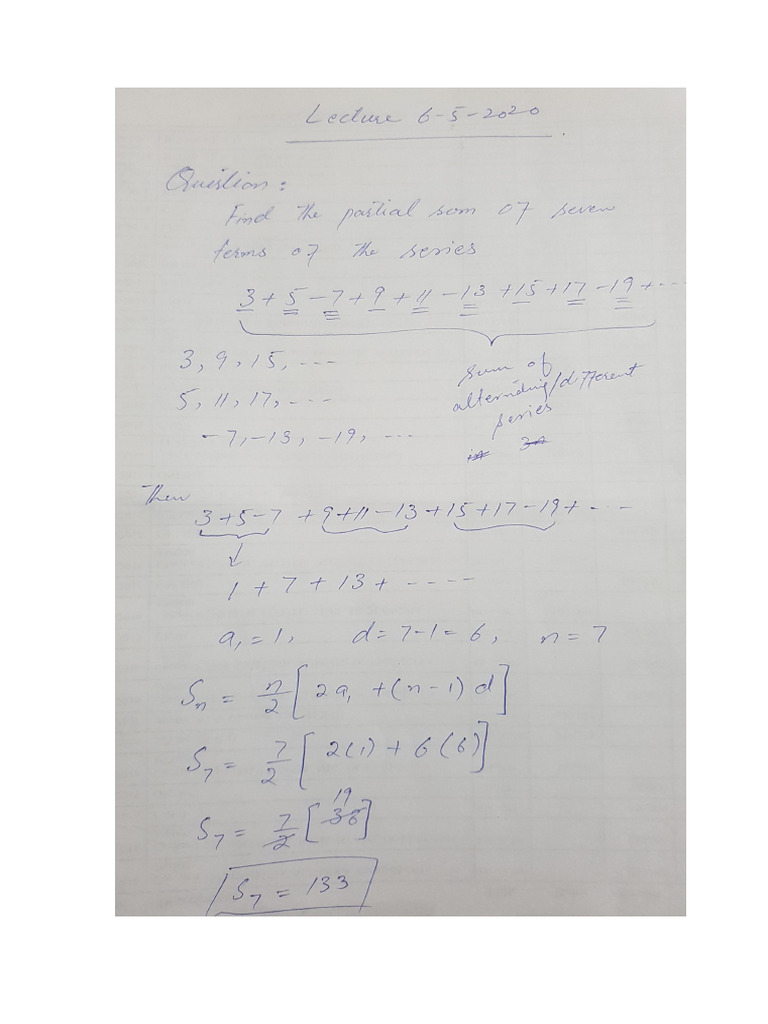 Lecture 6-5-2020
Question:
Find the partial sum of seven
terms of the series
3 + 5 - 7 + 9 + 11 - 13 + 15 + 17 - 19 + ---
3, 9, 15, ---
5, 11, 17, ---
-7, -13, -19, ---
sum of
alternating/different
series
in 3n
Then
3 + 5 - 7 + 9 + 11 - 13 + 15 + 17 - 19 + ---
↓
1 + 7 + 13 + ----
a₁ = 1, d = 7-1 = 6, n = 7
Sₙ = n/2 [2a₁ + (n-1) d]
S₇ = 7/2 [2(1) + 6(6)]
19
S₇ = 7/2 [38]
S₇ = 133